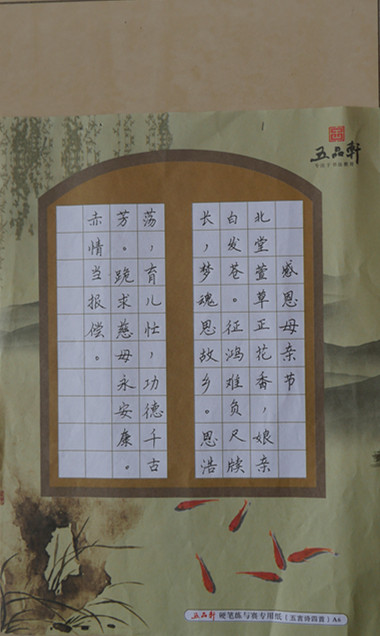 五品軒
感恩母亲节
北堂萱草正花香，娘亲
白发苍。征鸿难负尺牍
长，梦魂思故乡。恩浩
荡，育儿壮，功德千古
芳。跪求慈母永安康。
赤情当报偿。
五品軒 硬笔练与赛专用纸（五言诗四首）A4